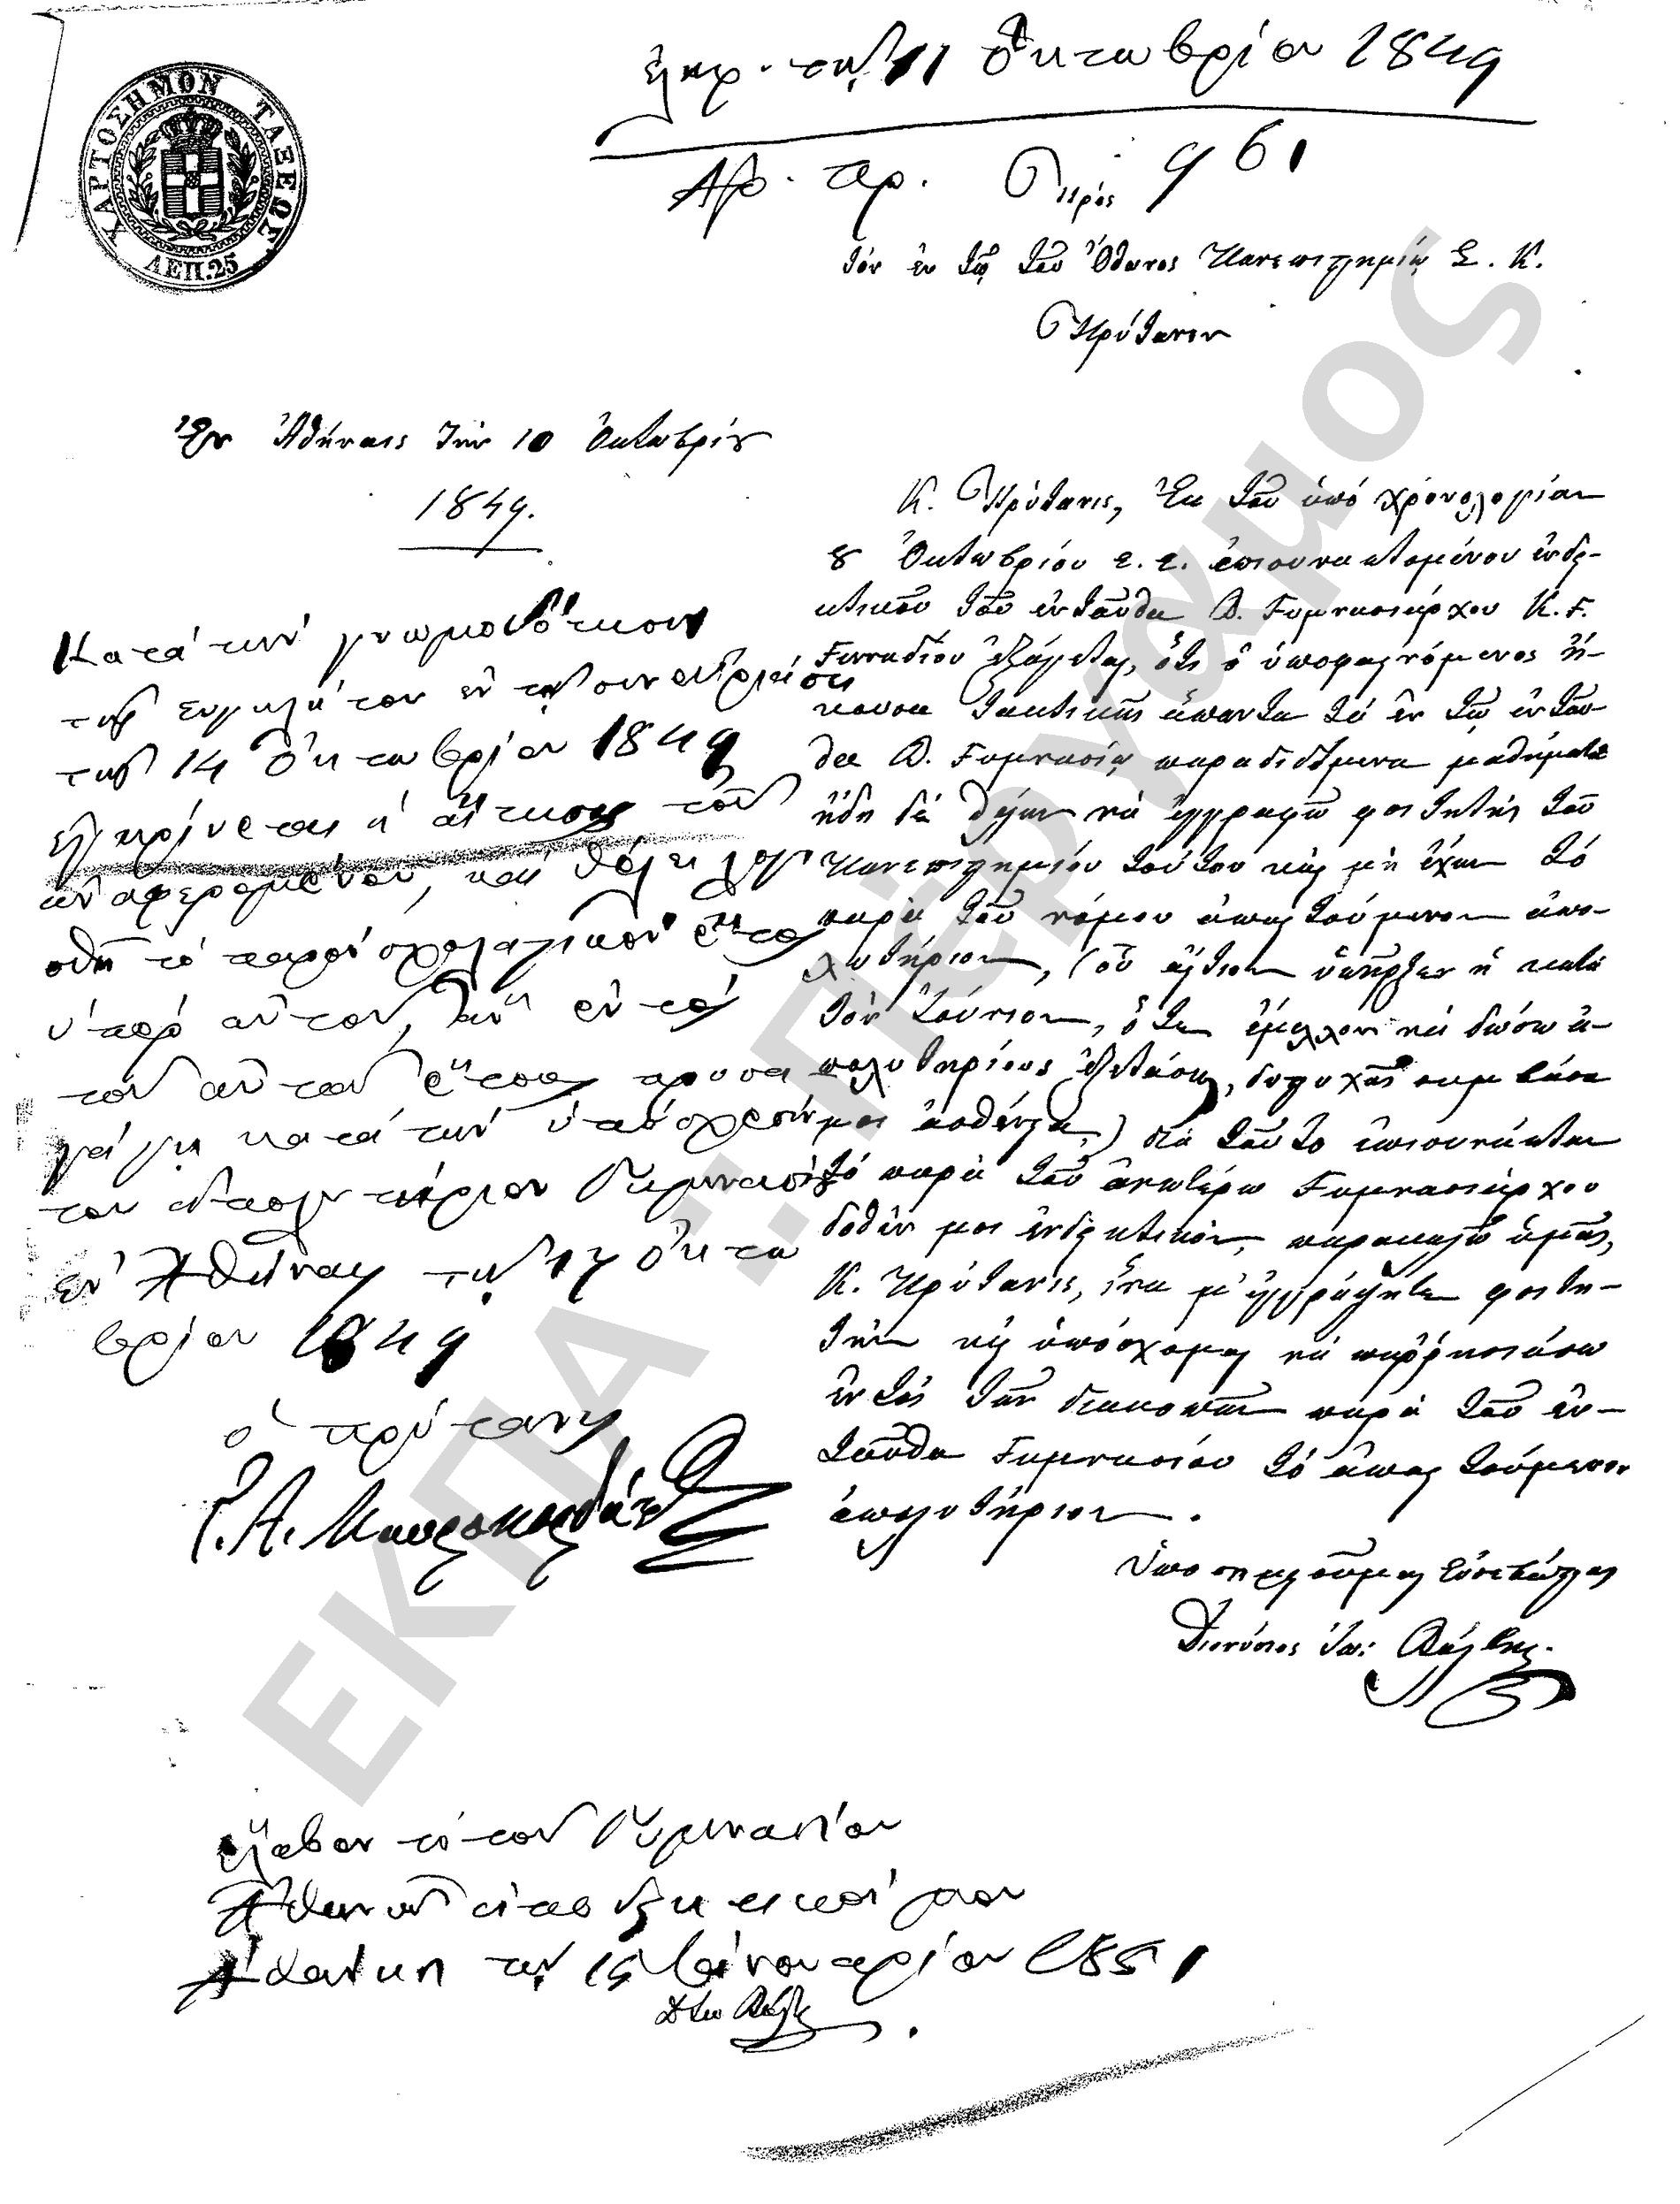 ΧΑΡΤΟΣΗΜΟΝ ΤΑΞΕΩΣ
ΛΕΠ.25
ἐλήφ. τῇ 11 Ὀκτωβρίου 1849
Αρ. πρ. 961
Πρός
τόν ἐν τῷ τοῦ Ὄθωνος Πανεπιστημίῳ Σ. Κ.
Πρύτανιν
Ἐν Ἀθήναις τήν 10 Ὀκτωβρίου
1849.
Κ. Πρύτανις, Ἐκ τοῦ ὑπό χρονολογίαν
8 Ὀκτωβρίου ε. ε. ἐπισυναπτομένου ἐνδει-
κτικοῦ τοῦ ἐνταῦθα Α. Γυμνασιάρχου Κ. Γ.
Γενναδίου ἐξάγεται, ὅτι ὁ ὑποφαινόμενος ἤ-
κουσα τακτικῶς ἅπαντα τά ἐν τῷ ἐνταῦ-
θα Α. Γυμνασίῳ παραδιδόμενα μαθήματα
ἤδη δέ θέλων νά ἐγγραφῶ φοιτητής τοῦ
Πανεπιστημίου τούτου καί μή ἔχων τό
παρά τοῦ νόμου ἀπαιτούμενον ἀπο-
λυτήριον, (οὗ αἴτιον ὑπῆρξεν ἡ κατά
τόν Ἰούνιον, ὅτε ἔμελλον νά δώσω ἀ-
πολυτηρίους ἐξετάσεις, δυστυχῶς συμβᾶσα
μοι ἀσθένεια,) διά τοῦτο ἐπισυνάπτων
τό παρά τοῦ ἀνωτέρω Γυμνασιάρχου
δοθέν μοι ἐνδεικτικόν, παρακαλῶ ὑμᾶς,
Κ. Πρύτανις, ἵνα μ' ἐγγράψητε φοιτη-
τήν καί ὑπόσχομαι νά παῤῥησιάσω
ἐντός τῶν διακοπῶν παρά τοῦ ἐν-
ταῦθα Γυμνασίου τό ἀπαιτούμενον
ἀπολυτήριον.
Ὑποσημειοῦμαι εὐσεβάστως
Διονύσιος Ἰω:
Κατά τήν γνωμοδότησιν
τῆς συγκλήτου ἐν τῇ συνεδριάσει
τῆς 14 Ὀκτωβρίου 1849
ἐγκρίνεται ἡ αἴτησις τοῦ
ἀναφερομένου, καί θέλει λογι
σθῆ τό παρόν σχολαστικόν ἔτος
ὑπέρ αὐτοῦ, ἄν ἐντός
τοῦ αὐτοῦ ἔτους προσα
γάγῃ κατά τήν ὑπόσχεσίν
του ἀπολυτήριον Γυμνασίου
ἐν Ἀθήναις τῇ 17 Ὀκτω
βρίου 1849
ὁ πρύτανις
Γ. Α. Μαυροκορδάτος
ἔλαβον τό τοῦ Γυμνασίου
Ἀθηνῶν ἀποδεικτικόν μου
τῇ 15 Ἰανουαρίου 1851